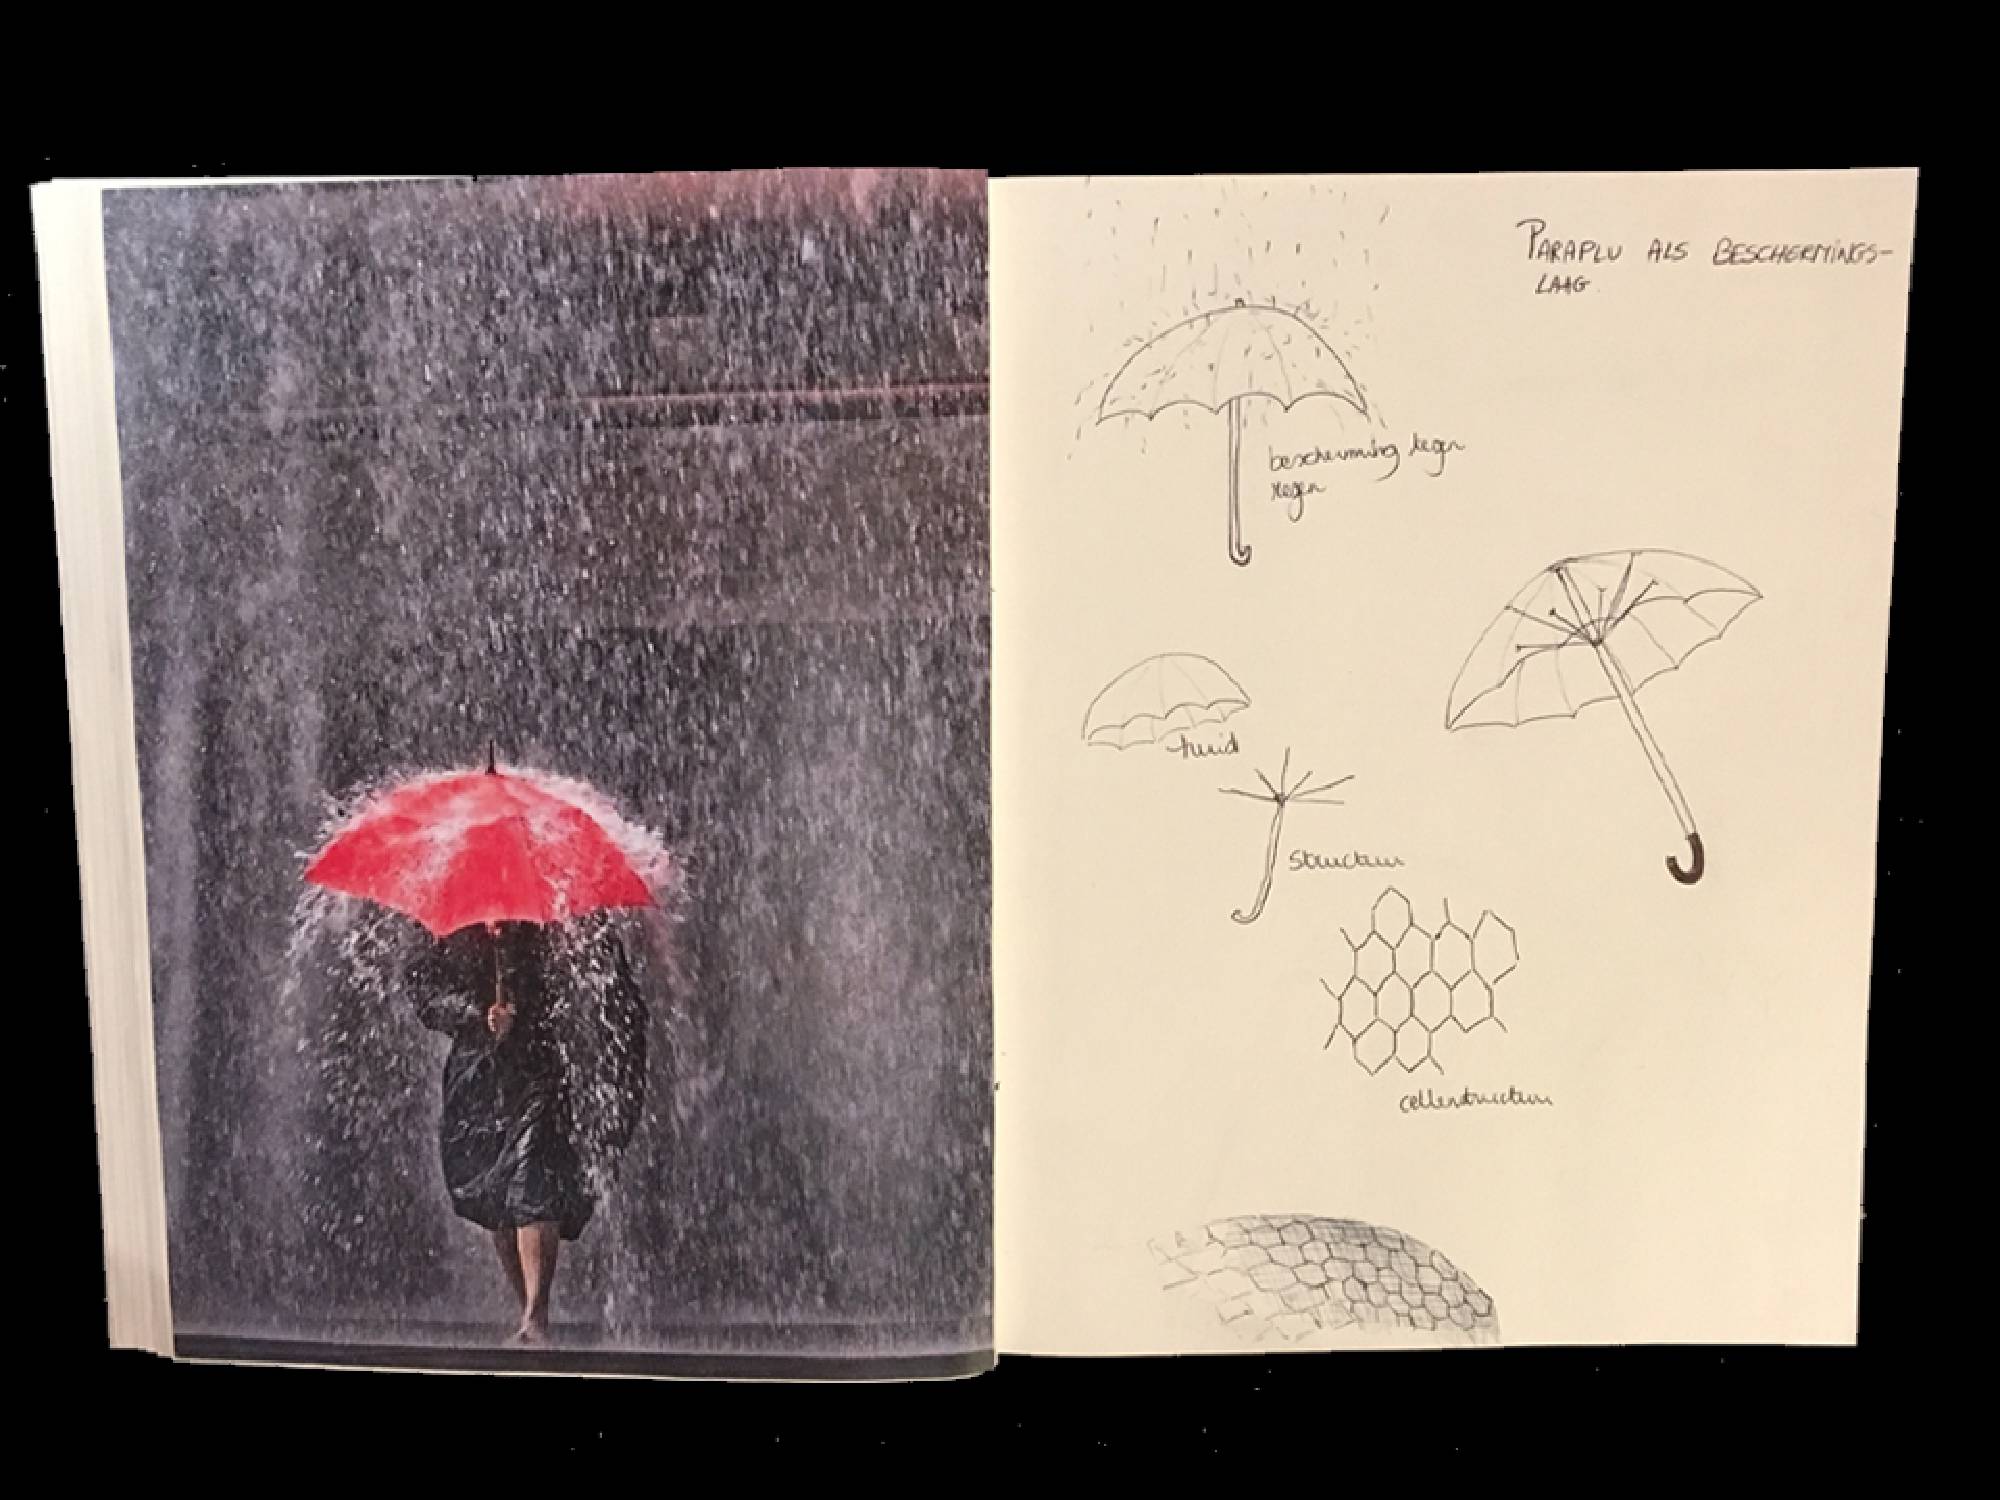 PARAPLU ALS BESCHERMINGS-
LAAG
bescherming tegen
regen
huid
structuur
cellenstructuur